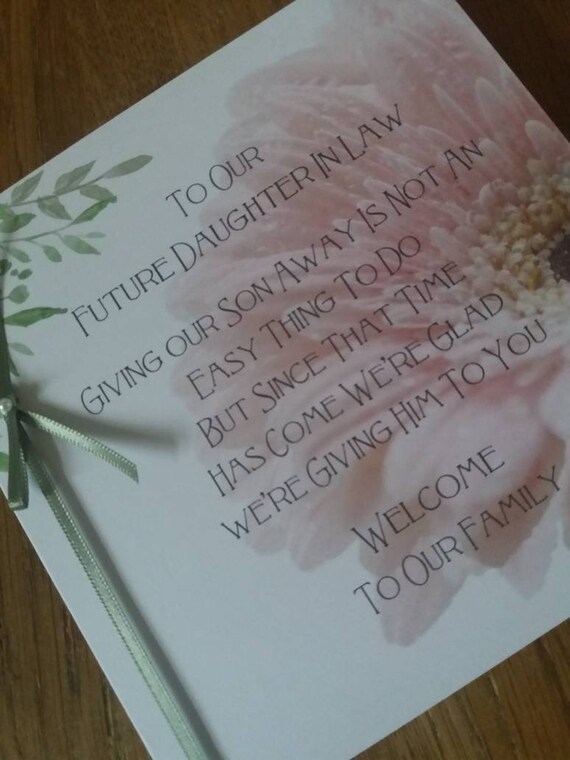 To Our
Future Daughter In Law
Giving our Son Away Is Not An
Easy Thing To Do
But Since That Time
Has Come We're Glad
we're Giving Him To You
Welcome
To Our Family